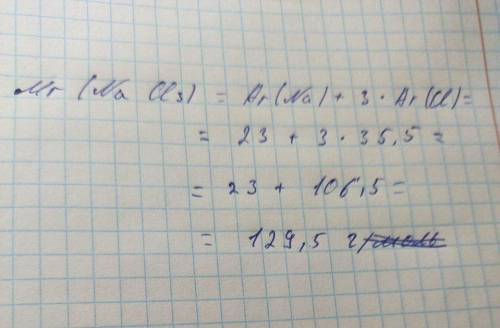 Mr (Na Cl3) = Ar(Na) + 3 · Ar(Cl) =
= 23 + 3 · 35,5 =
= 23 + 106,5 =
= 129,5 г/моль